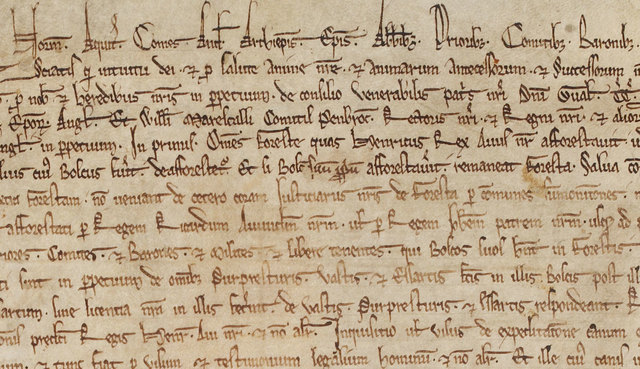 Norm̄. Aquit̄. Comes. And̄. Archiep̄is. Ep̄is. Abb̄ibȝ. Prioribȝ. Comitibȝ. Baronibȝ.
Sciatis qđ intuitu dei. et p̱ salute anime nr̄e. et animarum antecessorum. et Successorum
p̱ nob̄ et heredibus nr̄is in ppetuum. de consilio venerabilis patr̄ nr̄i Dn̄i Gual̄.
Ep̄or̄ Angl̄. Et Will̄i Marescalli Comitis Penbroc̄. Rectoris nr̄i. et Regni nr̄i. et alior
in ppetuum. In primis. Om̄es foreste quas Henricus Rex Avus nr̄ afforestavit
cuius Boscus fu'it. deafforestet'. Et si Boscum suum p̱p̄um afforestav'it. remaneat foresta. Salva
forestam. nō veniant de cetero coram Justiciariis nr̄is de foresta p̱ communes summonitiones.
afforestati p̱ Regem Ricardum Avunculum nr̄m. ul̄ p̱ Regem Joh̄em patrem nr̄m. usqȝ ad
Comites et Barones. et Milites et libere tenentes. qui Boscos suos h̄nt in forestis
sint in ppetuum de om̄ibȝ Purpresturis. Vastis. et Essartis fc̄is in illis Boscis post
sine licentia nr̄a in illis fec'int. de Vastis. Purpresturis. et Essartis respondeant.
pred̄c̄i Regis Henr̄. Avi nr̄i. et nō alit̄. Inquisitio ul̄ visus de expeditatione canum
et tunc fiat p̱ visum et testimonium legalium hominum. et nō alit̄. Et ille cuius canis